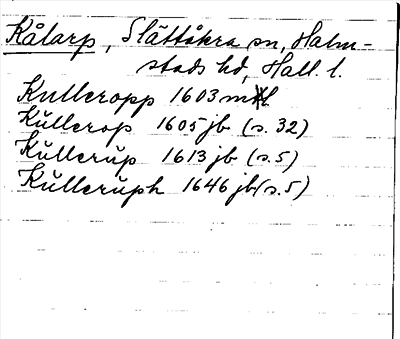 Kålarp, Slättåkra sn, Halm-
stads hd, Hall. l.
Kulleropp 1603 mtl
Kŭllerop 1605 jb (s. 32)
Kŭllerŭp 1613 jb (s. 5)
Kŭllerŭph 1646 jb (s. 5)